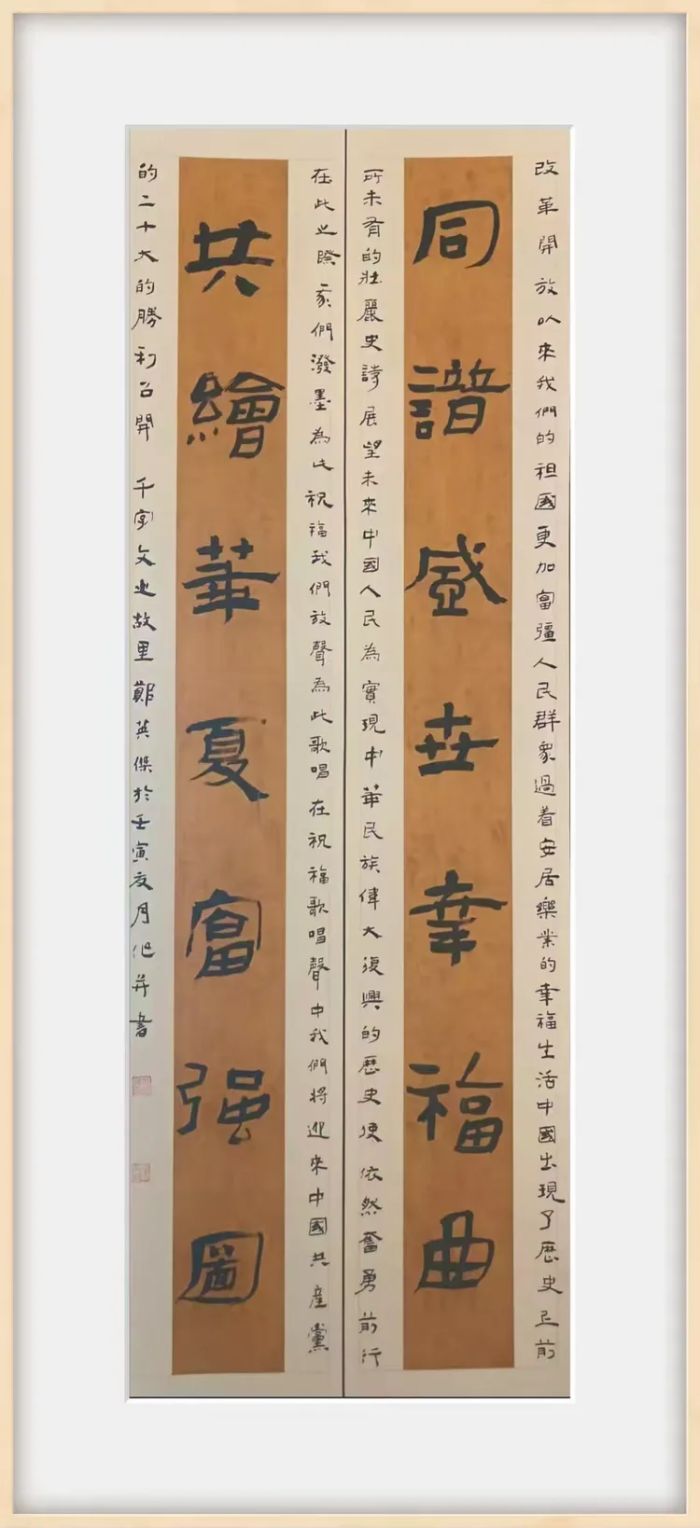 改革開放以來我們的祖國更加富彊人民群衆過着安居樂業的幸福生活中國出現了歷史上前
同譜盛世幸福曲
所未有的壯麗史詩展望未來中國人民為實現中華民族偉大復興的歷史使依然奮勇前行
在此之際我們潑墨為此祝福我們放聲為此歌唱在祝福歌唱聲中我們將迎來中國共産黨
共繪華夏富强圖
的二十大的勝利召開 千字文之故里鄭英傑於壬寅夏月作并書